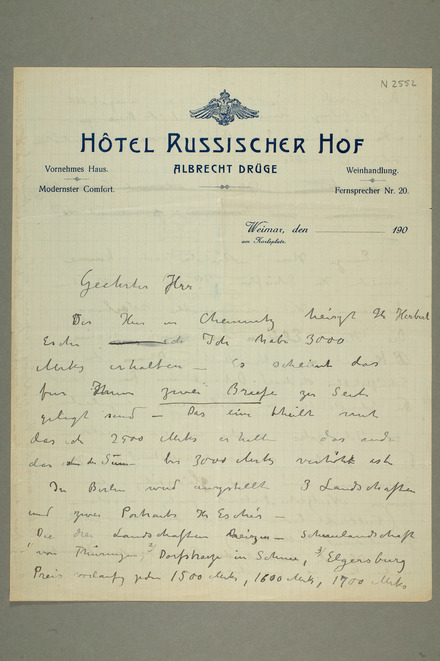 N 2552
HÔTEL RUSSISCHER HOF
ALBRECHT DRÜGE
Vornehmes Haus.
Modernster Comfort.
Weinhandlung.
Fernsprecher Nr. 20.
Weimar, den 190
am Karlsplatz.
Geehrter Herr
Der Herr in Chemnitz heisst Hr Herbert
Esche Ich habe 3000
Marks erhalten – Es scheint das
fur zwei Briefe zur Seite
gelegt sind – Das eine theilt mit
das ich 2500 Marks erhalte das andere
das die Summe bis 3000 Marks erhöht ist
In Berlin wird ausgestellt 3 Landschaften
und zwei Portraits Hr Esche's –
Die drei Landschaften heissen – Schneelandschaft
von Thüringen, 2/ Dorfstrasse in Schnee, 3/ Elgersburg
Preis vorlaufig jeden 1500 Marks, 1600 Marks, 1700 Marks